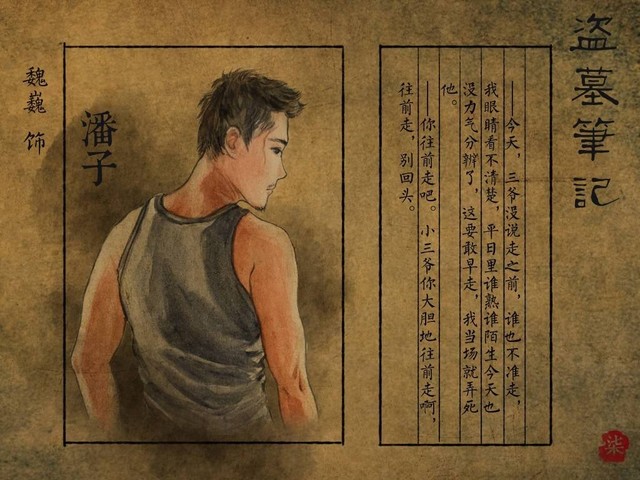 盗墓筆記
——今天，三爷没说走之前，谁也不准走，
我眼睛看不清楚，平日里谁熟谁陌生今天也
没力气分辨了，这要敢早走，我当场就弄死
他。
——你往前走吧。小三爷你大胆地往前走啊，
往前走，别回头。
潘子
魏巍 饰
柒